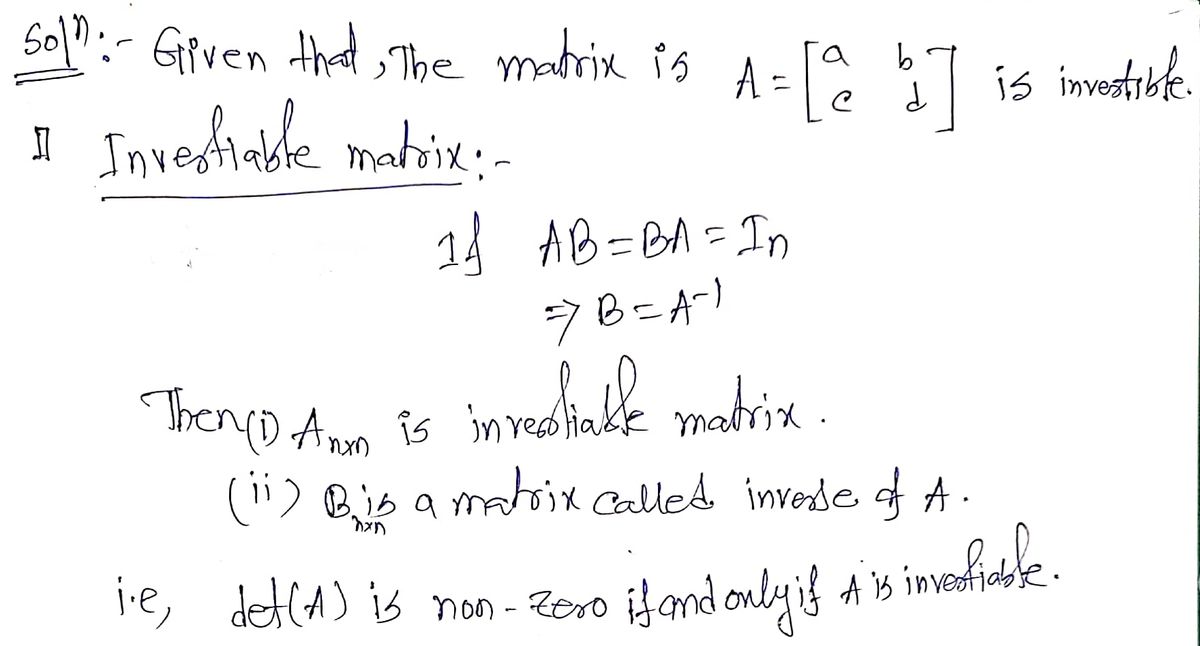 Solⁿ:- Given that, The matrix is A = [a b c d] is invertible.
II Invertiable matrix:-
If AB = BA = In
⇒ B = A⁻¹
Then (i) Anxn is invertiable matrix.
(ii) Bnxn is a matrix called inverse of A.
i.e, det(A) is non-zero if and only if A is invertiable.